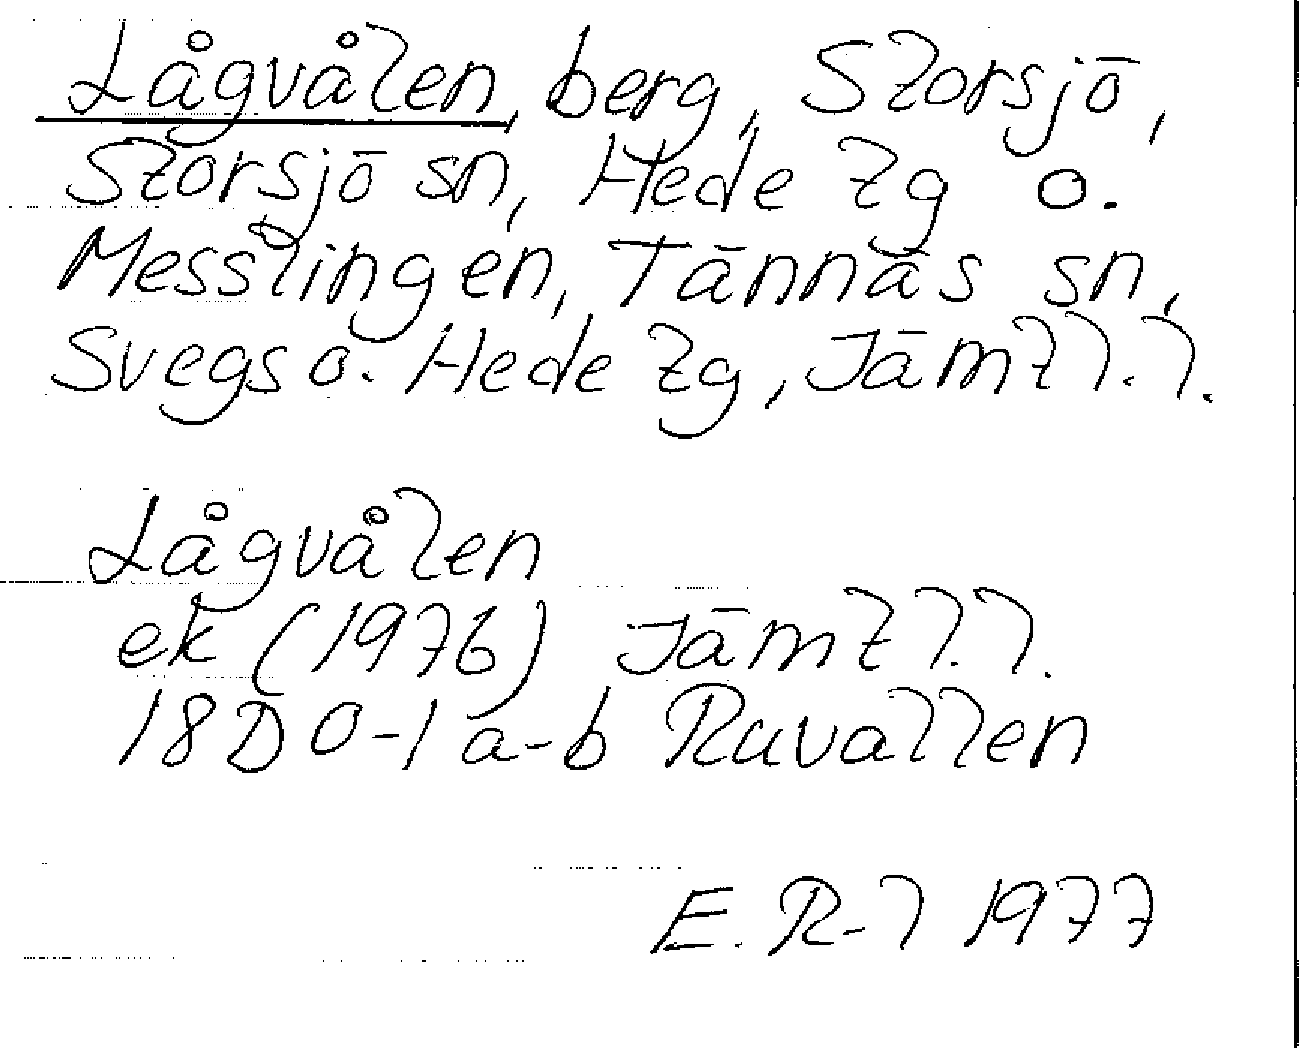 Lågvålen, berg, Storsjö,
Storsjö sn, Hede tg o.
Messlingen, Tännäs sn,
Svegs o. Hede tg, Jämtl.l.
Lågvålen
ek (1976) Jämtl.l.
18D 0-1 a-b Ruvallen
E. R-l 1977